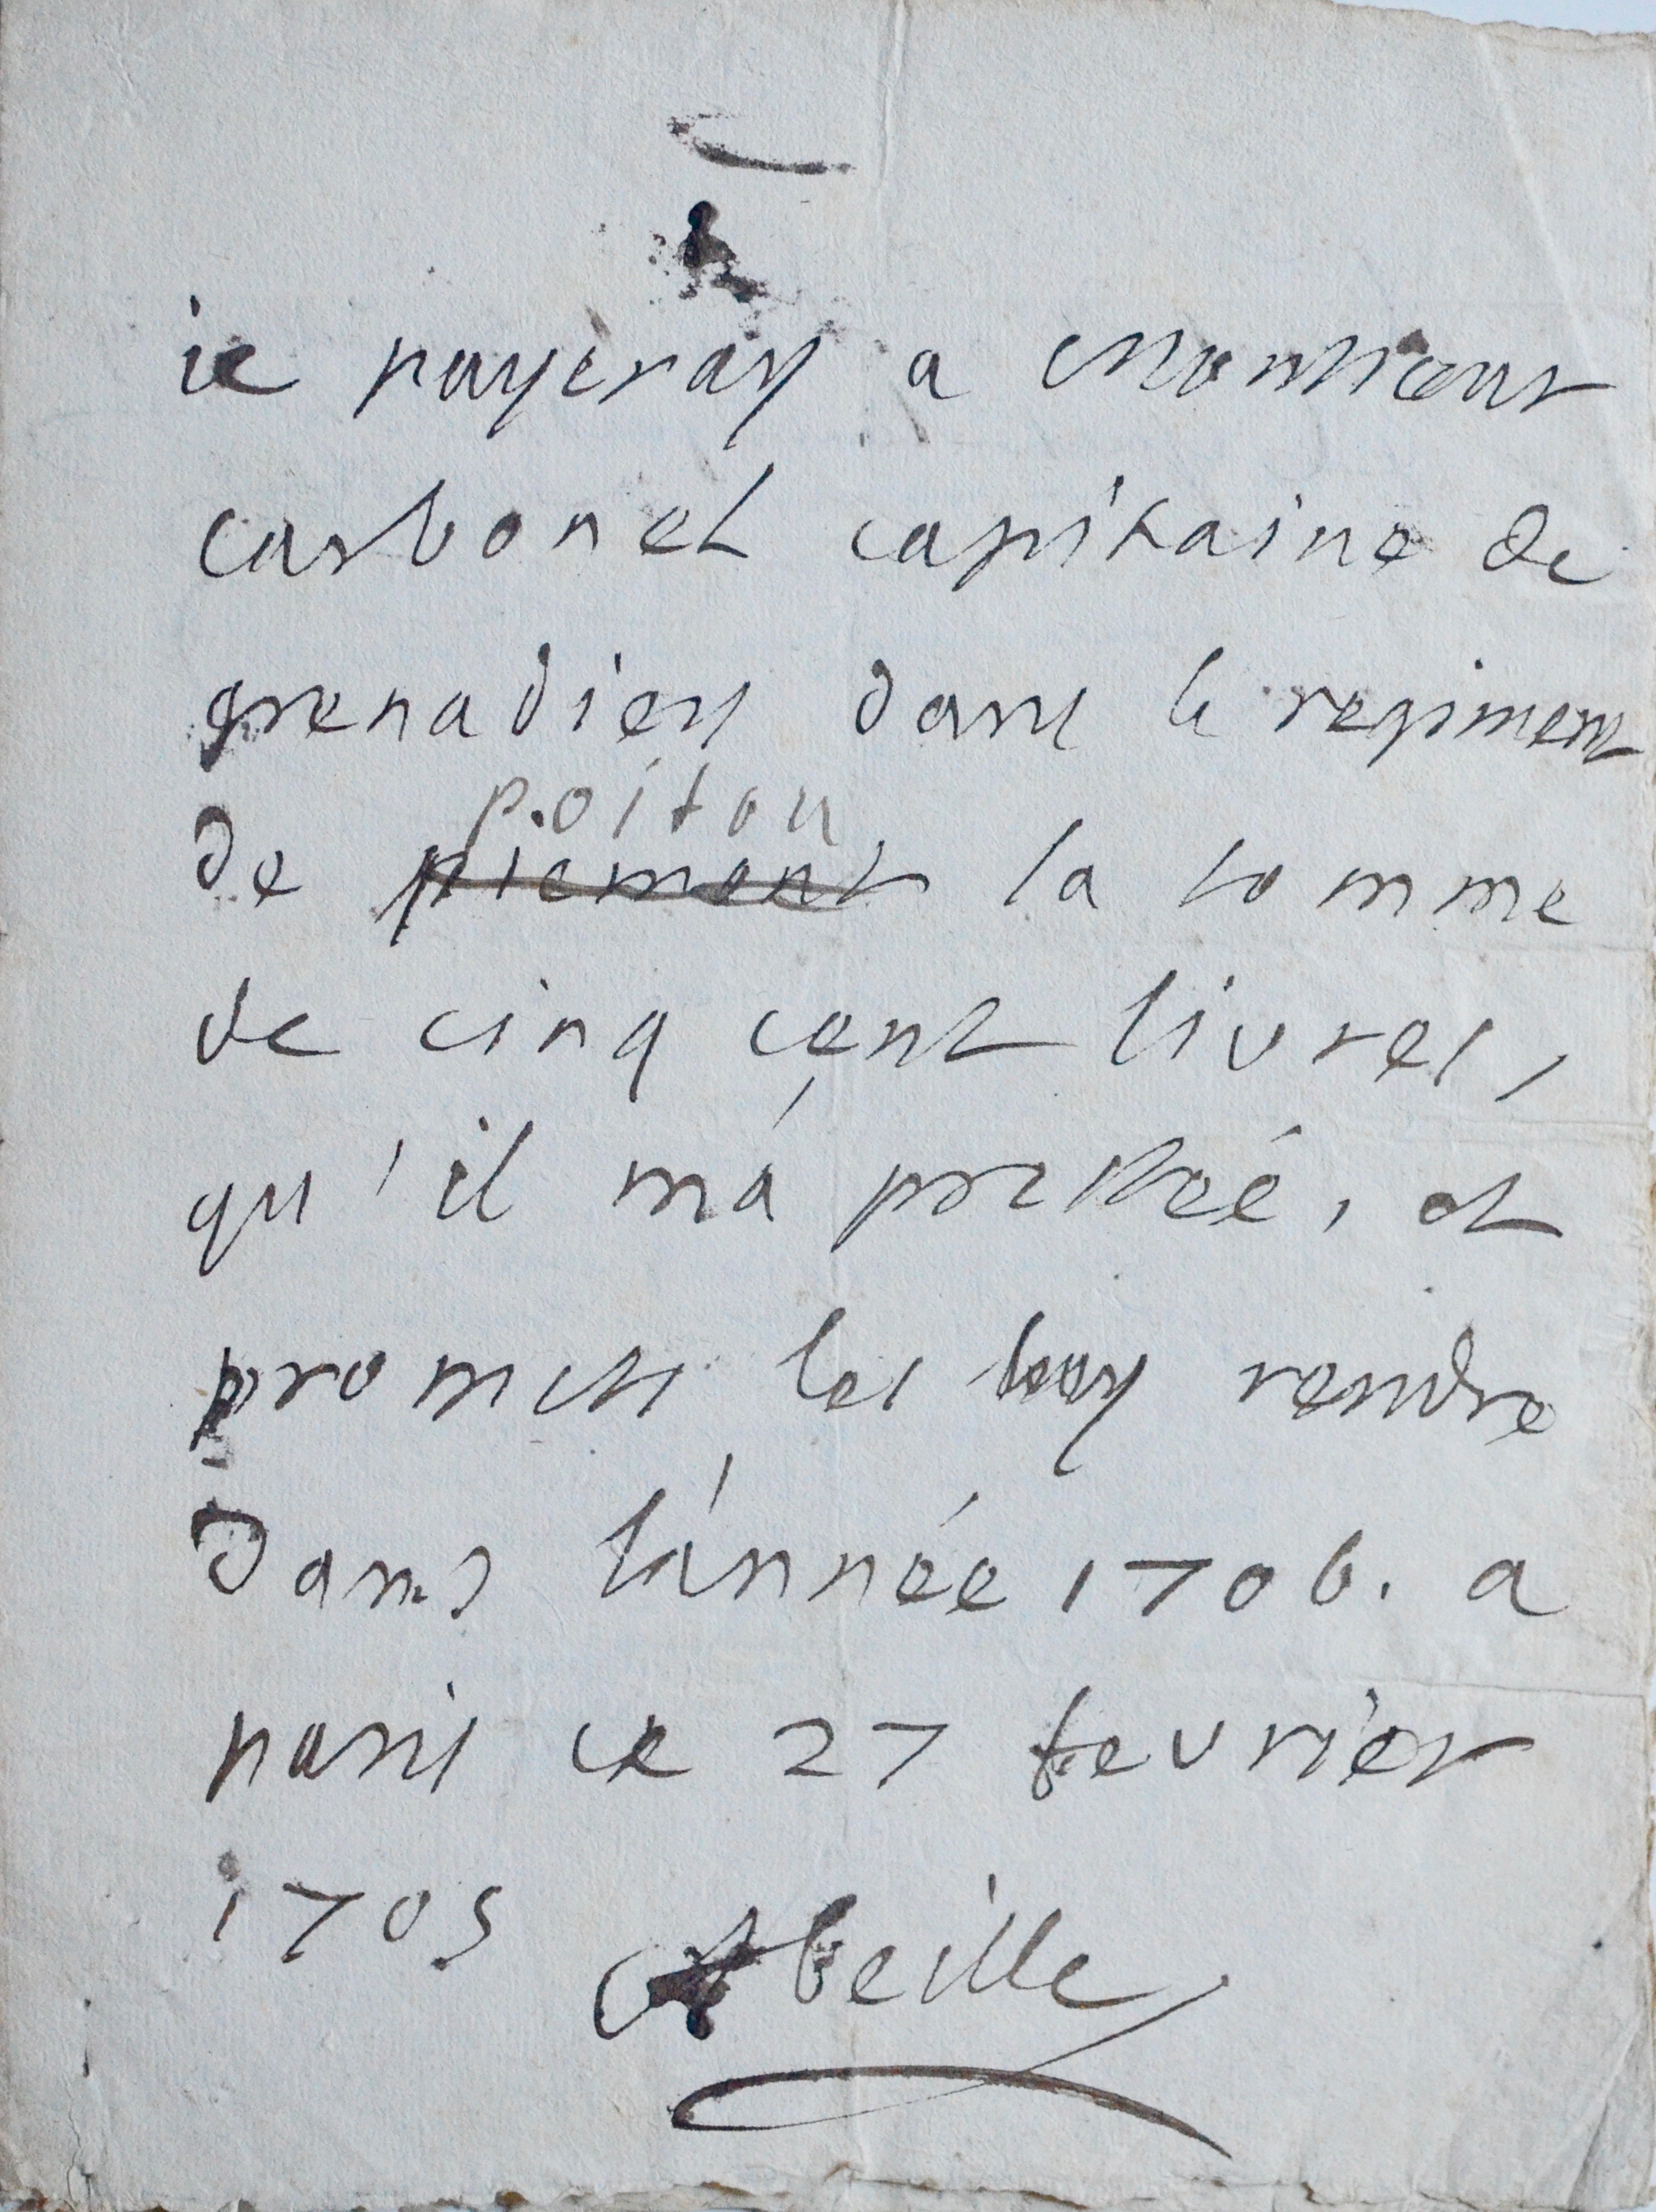 ie payeray a Monsieur
carbonel capitaine de
grenadiers dans le regiment
poitou
de piemont la somme
de cinq cent livres,
qu'il m'a prestée, et
promets les luy rendre
dans l'année 1706. a
paris ce 27 fevrier
1705 Abeille